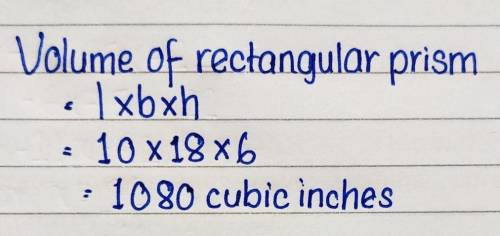 Volume of rectangular prism
= l x b x h
= 10 x 18 x 6
= 1080 cubic inches